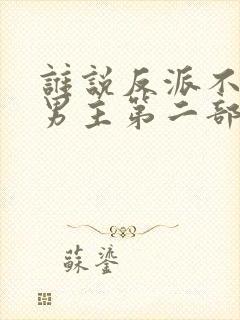 誰説反派不
男主第二部
蘇鎏